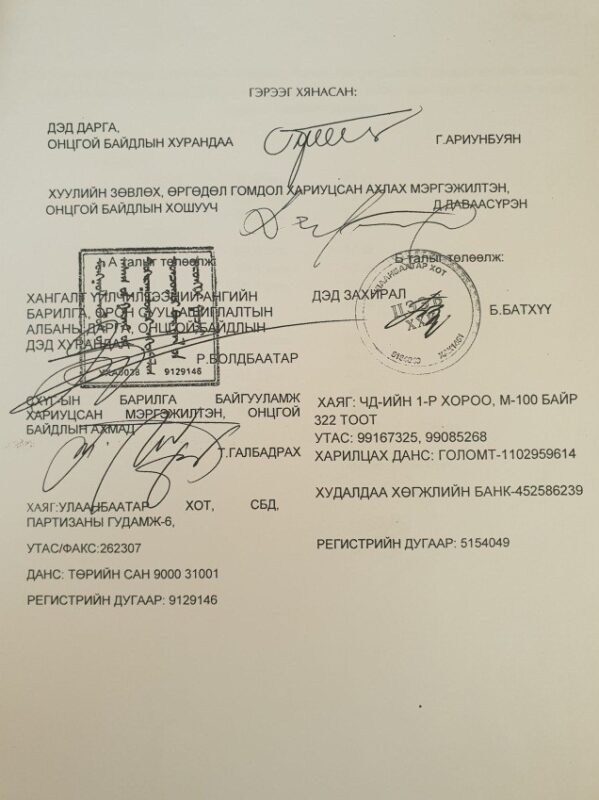 ГЭРЭЭГ ХЯНАСАН:
ДЭД ДАРГА,
ОНЦГОЙ БАЙДЛЫН ХУРАНДАА
Г.АРИУНБУЯН
ХУУЛИЙН ЗӨВЛӨХ, ӨРГӨДӨЛ ГОМДОЛ ХАРИУЦСАН АХЛАХ МЭРГЭЖИЛТЭН,
ОНЦГОЙ БАЙДЛЫН ХОШУУЧ
Д.ДАВААСҮРЭН
А талыг төлөөлж:
ХАНГАЛТ ҮЙЛЧИЛГЭЭНИЙ АНГИЙН
БАРИЛГА, ОРОН СУУЦ АШИГЛАЛТЫН
АЛБАНЫ ДАРГА, ОНЦГОЙ БАЙДЛЫН
ДЭД ХУРАНДАА
Р.БОЛДБААТАР
9129146
БАРИЛГА БАЙГУУЛАМЖ
ХАРИУЦСАН МЭРГЭЖИЛТЭН, ОНЦГОЙ
БАЙДЛЫН АХМАД
Т.ГАЛБАДРАХ
ХАЯГ:УЛААНБААТАР ХОТ, СБД,
ПАРТИЗАНЫ ГУДАМЖ-6,
УТАС/ФАКС:262307
ДАНС: ТӨРИЙН САН 9000 31001
РЕГИСТРИЙН ДУГААР: 9129146
Б талыг төлөөлж:
ДЭД ЗАХИРАЛ
Б.БАТХҮҮ
УЛААНБААТАР ХОТ
ХХК
ХАЯГ: ЧД-ИЙН 1-Р ХОРОО, М-100 БАЙР
322 ТООТ
УТАС: 99167325, 99085268
ХАРИЛЦАХ ДАНС: ГОЛОМТ-1102959614
ХУДАЛДАА ХӨГЖЛИЙН БАНК-452586239
РЕГИСТРИЙН ДУГААР: 5154049